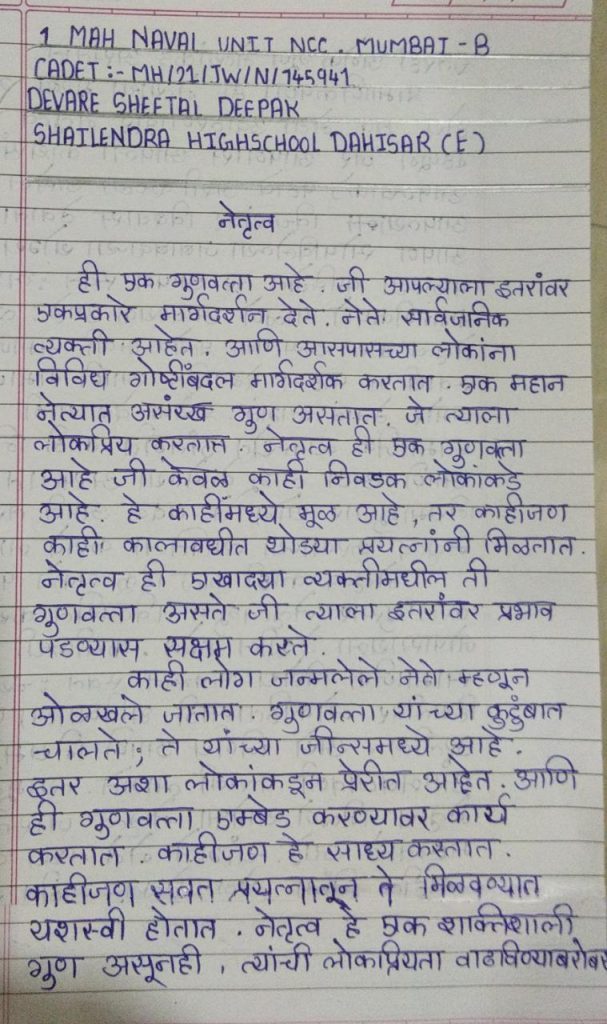 1 MAH NAVAL UNIT NCC. MUMBAI - B
CADET :- MH/21/JW/N/745941
DEVARE SHEETAL DEEPAK
SHAILENDRA HIGHSCHOOL DAHISAR (E)
नेतृत्व
ही एक गुणवत्ता आहे. जी आपल्याला इतरांवर
एकप्रकारे मार्गदर्शन देते. नेते सार्वजनिक
व्यक्ती आहेत. आणि आसपासच्या लोकांना
विविध गोष्टींबद्दल मार्गदर्शक करतात. एक महान
नेत्यात असंख्य गुण असतात. जे त्याला
लोकप्रिय करतात. नेतृत्व ही एक गुणवत्ता
आहे जी केवळ काही निवडक लोकांकडे
आहे. हे काहींमध्ये मूळ आहे, तर काहीजण
काही कालावधीत थोडया प्रयत्नांनी मिळतात.
नेतृत्व ही एखादया व्यक्तीमधील ती
गुणवत्ता असते जी त्याला इतरांवर प्रभाव
पडण्यास सक्षम करते.
काही लोग जन्मलेले नेते म्हणून
ओळखले जातात. गुणवत्ता यांच्या कुटुंबात
चालते; ते यांच्या जीन्समध्ये आहे.
इतर अशा लोकांकडून प्रेरीत आहेत. आणि
ही गुणवत्ता एम्बेड करण्यावर कार्य
करतात. काहीजण हे साध्य करतात.
काहीजण सवत प्रयत्नातून ते मिळवण्यात
यशस्वी होतात. नेतृत्व हे एक शक्तिशाली
गुण असूनही, त्यांची लोकप्रियता वाढविण्याबरोबर